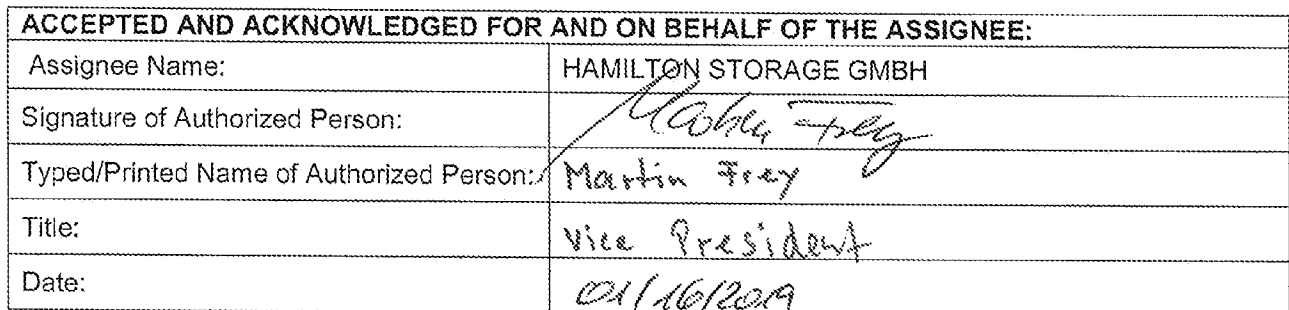 ACCEPTED AND ACKNOWLEDGED FOR AND ON BEHALF OF THE ASSIGNEE:
Assignee Name: HAMILTON STORAGE GMBH
Signature of Authorized Person: Frey
Typed/Printed Name of Authorized Person: Martin Frey
Title: Vice President
Date: 01/16/2019